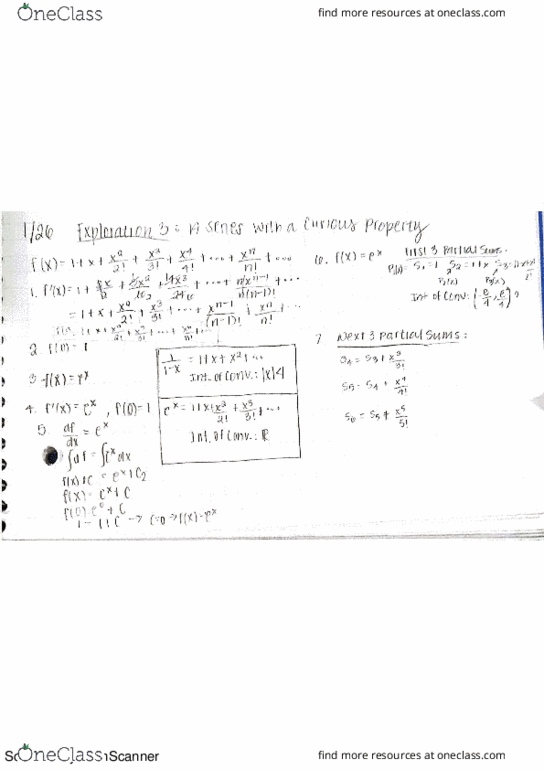 OneClass find more resources at oneclass.com
1/26 Exploration 3: A series with a Curious Property
f(x) = 1 + x + x²/2! + x³/3! + x⁴/4! + ... + xⁿ/n! + ...
1. f'(x) = 1 +
= 1 + x + x²/2! + x³/3! + ... + xⁿ⁻¹/(n-1)! + xⁿ/n! + ...
2. f(0) = 1
3. f(x) = eˣ
4. f'(x) = eˣ, f(0) = 1
5. df/dx = eˣ
∫df = ∫eˣdx
f(x) + C = eˣ + C₂
f(x) = eˣ + C
f(0) e⁰ + C
1 = 1 + C → C=0 → f(x) = eˣ
1/1-x = 1 + x + x² + ...
Int. of Conv.:
eˣ = 1 + x + x²/2! + x³/3! + ...
Int. of Conv.: ℝ
6. f(x) = eˣ
First 3 Partial Sums.
S₁ = 1 S₂ = 1 + x
Int of Conv:
7. Next 3 Partial Sums:
S₄ = S₃ + x³/3!
S₅ = S₄ + x⁴/4!
S₆ = S₅ + x⁵/5!
OneClass Scanner find more resources at oneclass.com